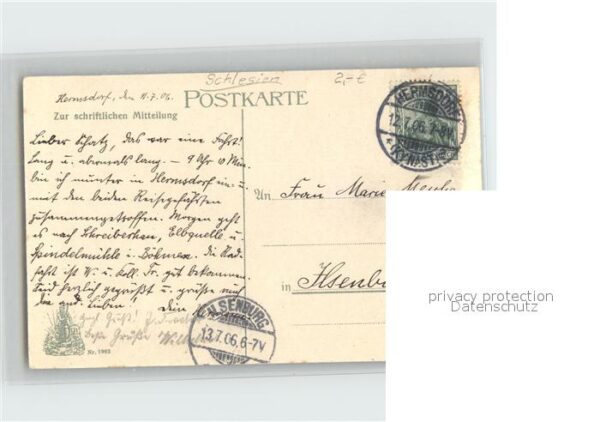 Schlesien 2,-€
Hermsdorf, den 11.7.06.
POSTKARTE
Zur schriftlichen Mitteilung
HERMSDORF
12.7.06. 7-8V.
(KYNAST)
Lieber Schatz, das war eine Fahrt!
Lang u. abermals lang. – 9 Uhr 10 Min.
bin ich munter in Hermsdorf ein- u.
mit den beiden Reisegefährten
zusammengetroffen. Morgen geht
es nach Schreiberhau, Elbquelle u.
Spindelmühle i. Böhmen. Die Rad-
fahrt ist W. u. Koll. Fr. gut bekommen.
Seid herzlich gegrüßt u. grüße mir
die and. Lieben! Dein
An Frau Marie
in Ilsenb
Gruß!
beste Grüße
ILSENBURG
13.7.06. 6-7V.
Nr. 1902
privacy protection
Datenschutz